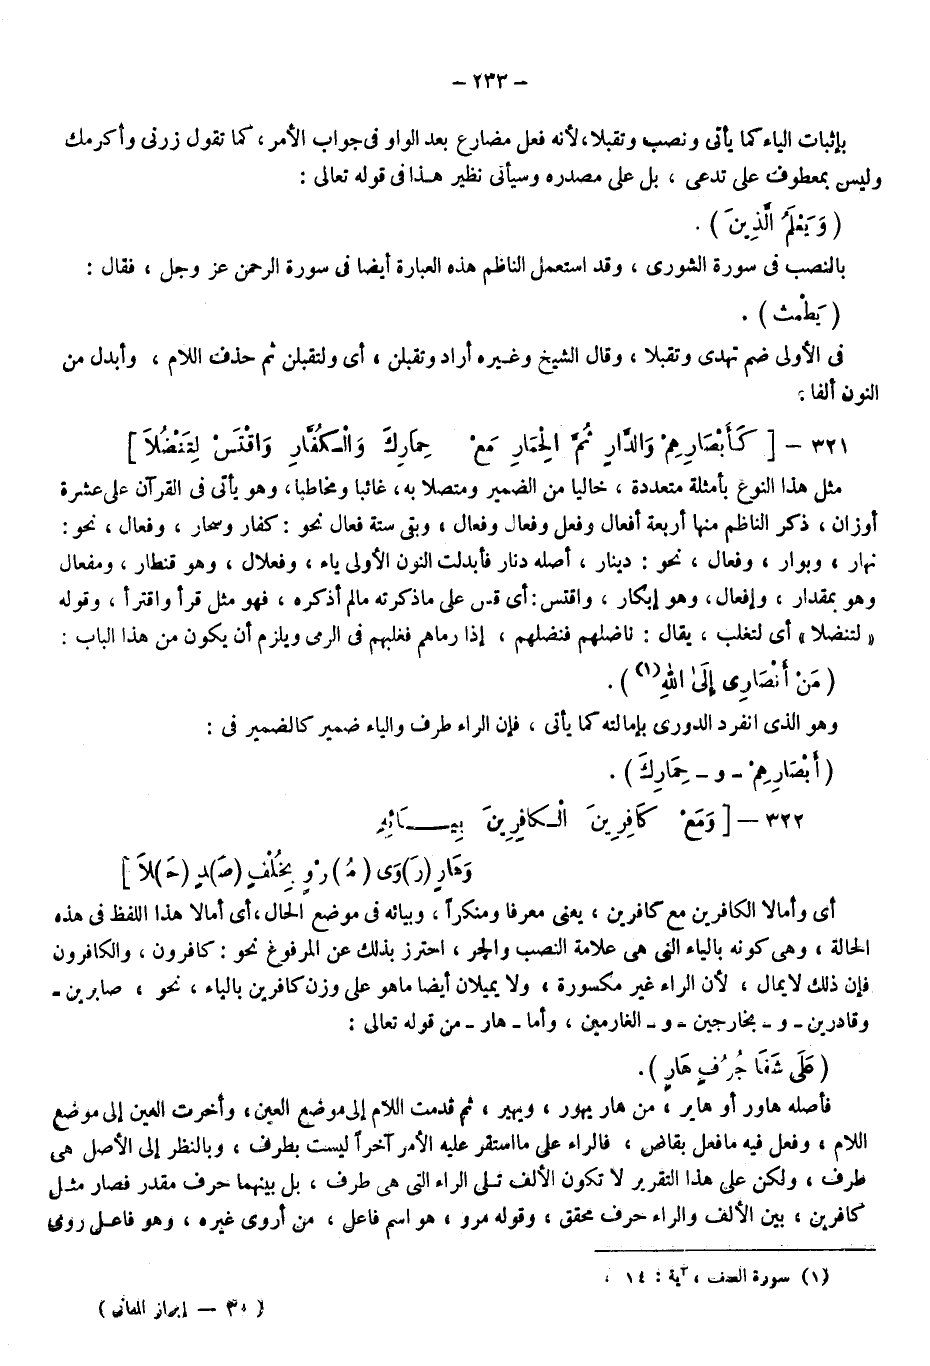 – ٢٣٣ –
بإثبات الياء كما يأتى ونصب وتقبلا، لأنه فعل مضارع بعد الواو فى جواب الأمر، كما تقول زرنى وأكرمك
وليس بمعطوف على تدعى ، بل على مصدره وسيأتى نظير هذا فى قوله تعالى :
( وَيَعْلَمَ الَّذِينَ ) .
بالنصب فى سورة الشورى ، وقد استعمل الناظم هذه العبارة أيضا فى سورة الرحمن عز وجل ، فقال :
( يَطْمِثْ ) .
فى الأولى ضم تهدى وتقبلا ، وقال الشيخ وغيره أراد وتقبلن ، أى ولتقبلن ثم حذف اللام ، وأبدل من
النون ألفا :
٣٢١ – [ كَأَبْصَارِهِمْ وَالدَّارِ ثُمَّ الْحِمَارِ مَعْ حِمَارِكَ وَالْكُفَّارِ وَاقْتَسْ لِتَنْضُلاَ ]
مثل هذا النوع بأمثلة متعددة ، خاليا من الضمير ومتصلا به، غائبا ومخاطبا، وهو يأتى فى القرآن على عشرة
أوزان ، ذكر الناظم منها أربعة أفعال وفعل وفعال وفعال ، وبقى ستة فعال نحو : كفار وسحار ، وفعال ، نحو :
نهار ، وبوار ، وفعال ، نحو : دينار ، أصله دنار فأبدلت النون الأولى ياء ، وفعلال ، وهو قنطار ، ومفعال
وهو بمقدار ، وإفعال، وهو إبكار ، واقتس : أى قس على ماذكرته مالم أذكره ، فهو مثل قرأ واقترأ ، وقوله
« لتنضلا » أى لتغلب ، يقال : ناضلهم فنضلهم ، إذا رماهم فغلبهم فى الرمى ويلزم أن يكون من هذا الباب :
( مَنْ أَنْصَارِى إِلَى اللهِ (١) ) .
وهو الذى انفرد الدورى بإمالته كما يأتى ، فإن الراء طرف والياء ضمير كالضمير فى :
( أَبْصَارِهِمْ - و - حِمَارِكَ ) .
٣٢٢ – [ وَمَعْ كَافِرِينَ الْكَافِرِينَ بِيَائِهِ
وَهَارٍ (رَ)وَى (مُ)رْوٍ بِخُلْفٍ (صَ)دٍ (حَ)لاَ ]
أى وأمالا الكافرين مع كافرين ، يعنى معرفا ومنكراً ، وبيائه فى موضع الحال ،أى أمالا هذا اللفظ فى هذه
الحالة ، وهى كونه بالياء التى هى علامة النصب والجر ، احترز بذلك عن المرفوع نحو : كافرون ، والكافرون
فإن ذلك لايمال ، لأن الراء غير مكسورة ، ولا يميلان أيضا ماهو على وزن كافرين بالياء ، نحو ، صابرين -
وقادرين - و - بخارجين - و - الغارمين ، وأما - هار - من قوله تعالى :
( عَلَى شَفَا جُرُفٍ هَارٍ ) .
فأصله هاور أو هاير ، من هار يهور ، ويهير ، ثم قدمت اللام إلى موضع العين، وأخرت العين إلى موضع
اللام ، وفعل فيه مافعل بقاض ، فالراء على مااستقر عليه الأمر آخراً ليست بطرف ، وبالنظر إلى الأصل هى
طرف ، ولكن على هذا التقرير لا تكون الألف تلى الراء التى هى طرف ، بل بينهما حرف مقدر فصار مثل
كافرين ، بين الألف والراء حرف محقق ، وقوله مرو ، هو اسم فاعل ، من أروى غيره ، وهو فاعل روى
(١) سورة الصف ، آية : ١٤ .
( ٣٠ – إبراز المعانى )